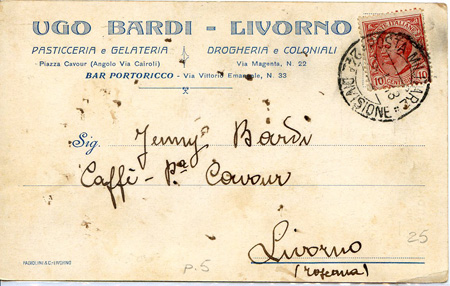 UGO BARDI - LIVORNO
PASTICCERIA e GELATERIA DROGHERIA e COLONIALI
Piazza Cavour (Angolo Via Cairoli) Via Magenta, N. 22
BAR PORTORICCO - Via Vittorio Emanuele, N. 33
POSTA MILITARE
DIVISIONE
10 10
Sig. Jenny Bardi
Caffè - Pa Cavour
Livorno
(Toscana)
25
P. 5